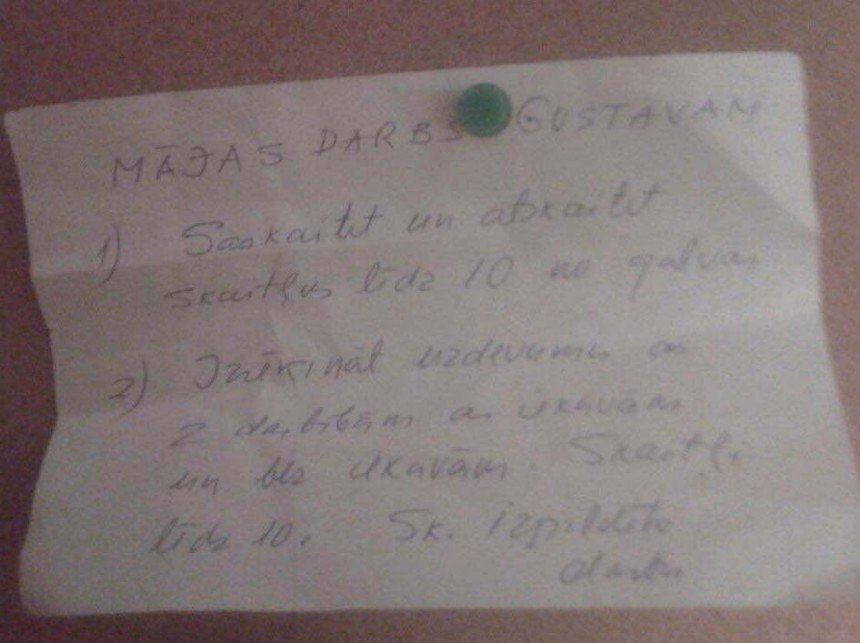 MĀJAS DARBS GUSTAVAM
1) Saskaitīt un atskaitīt
skaitļus līdz 10 no galvas
2) Izrēķināt uzdevumus ar
2 darbībām ar iekavām
un bez iekavām. Skaitļi
līdz 10. Sk. izpildīto
darbu